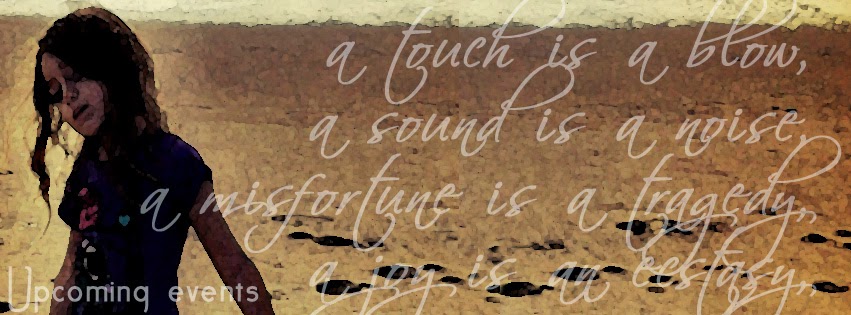 a touch is a blow,
a sound is a noise,
a misfortune is a tragedy,,
a joy is an ecstasy,,
Upcoming events